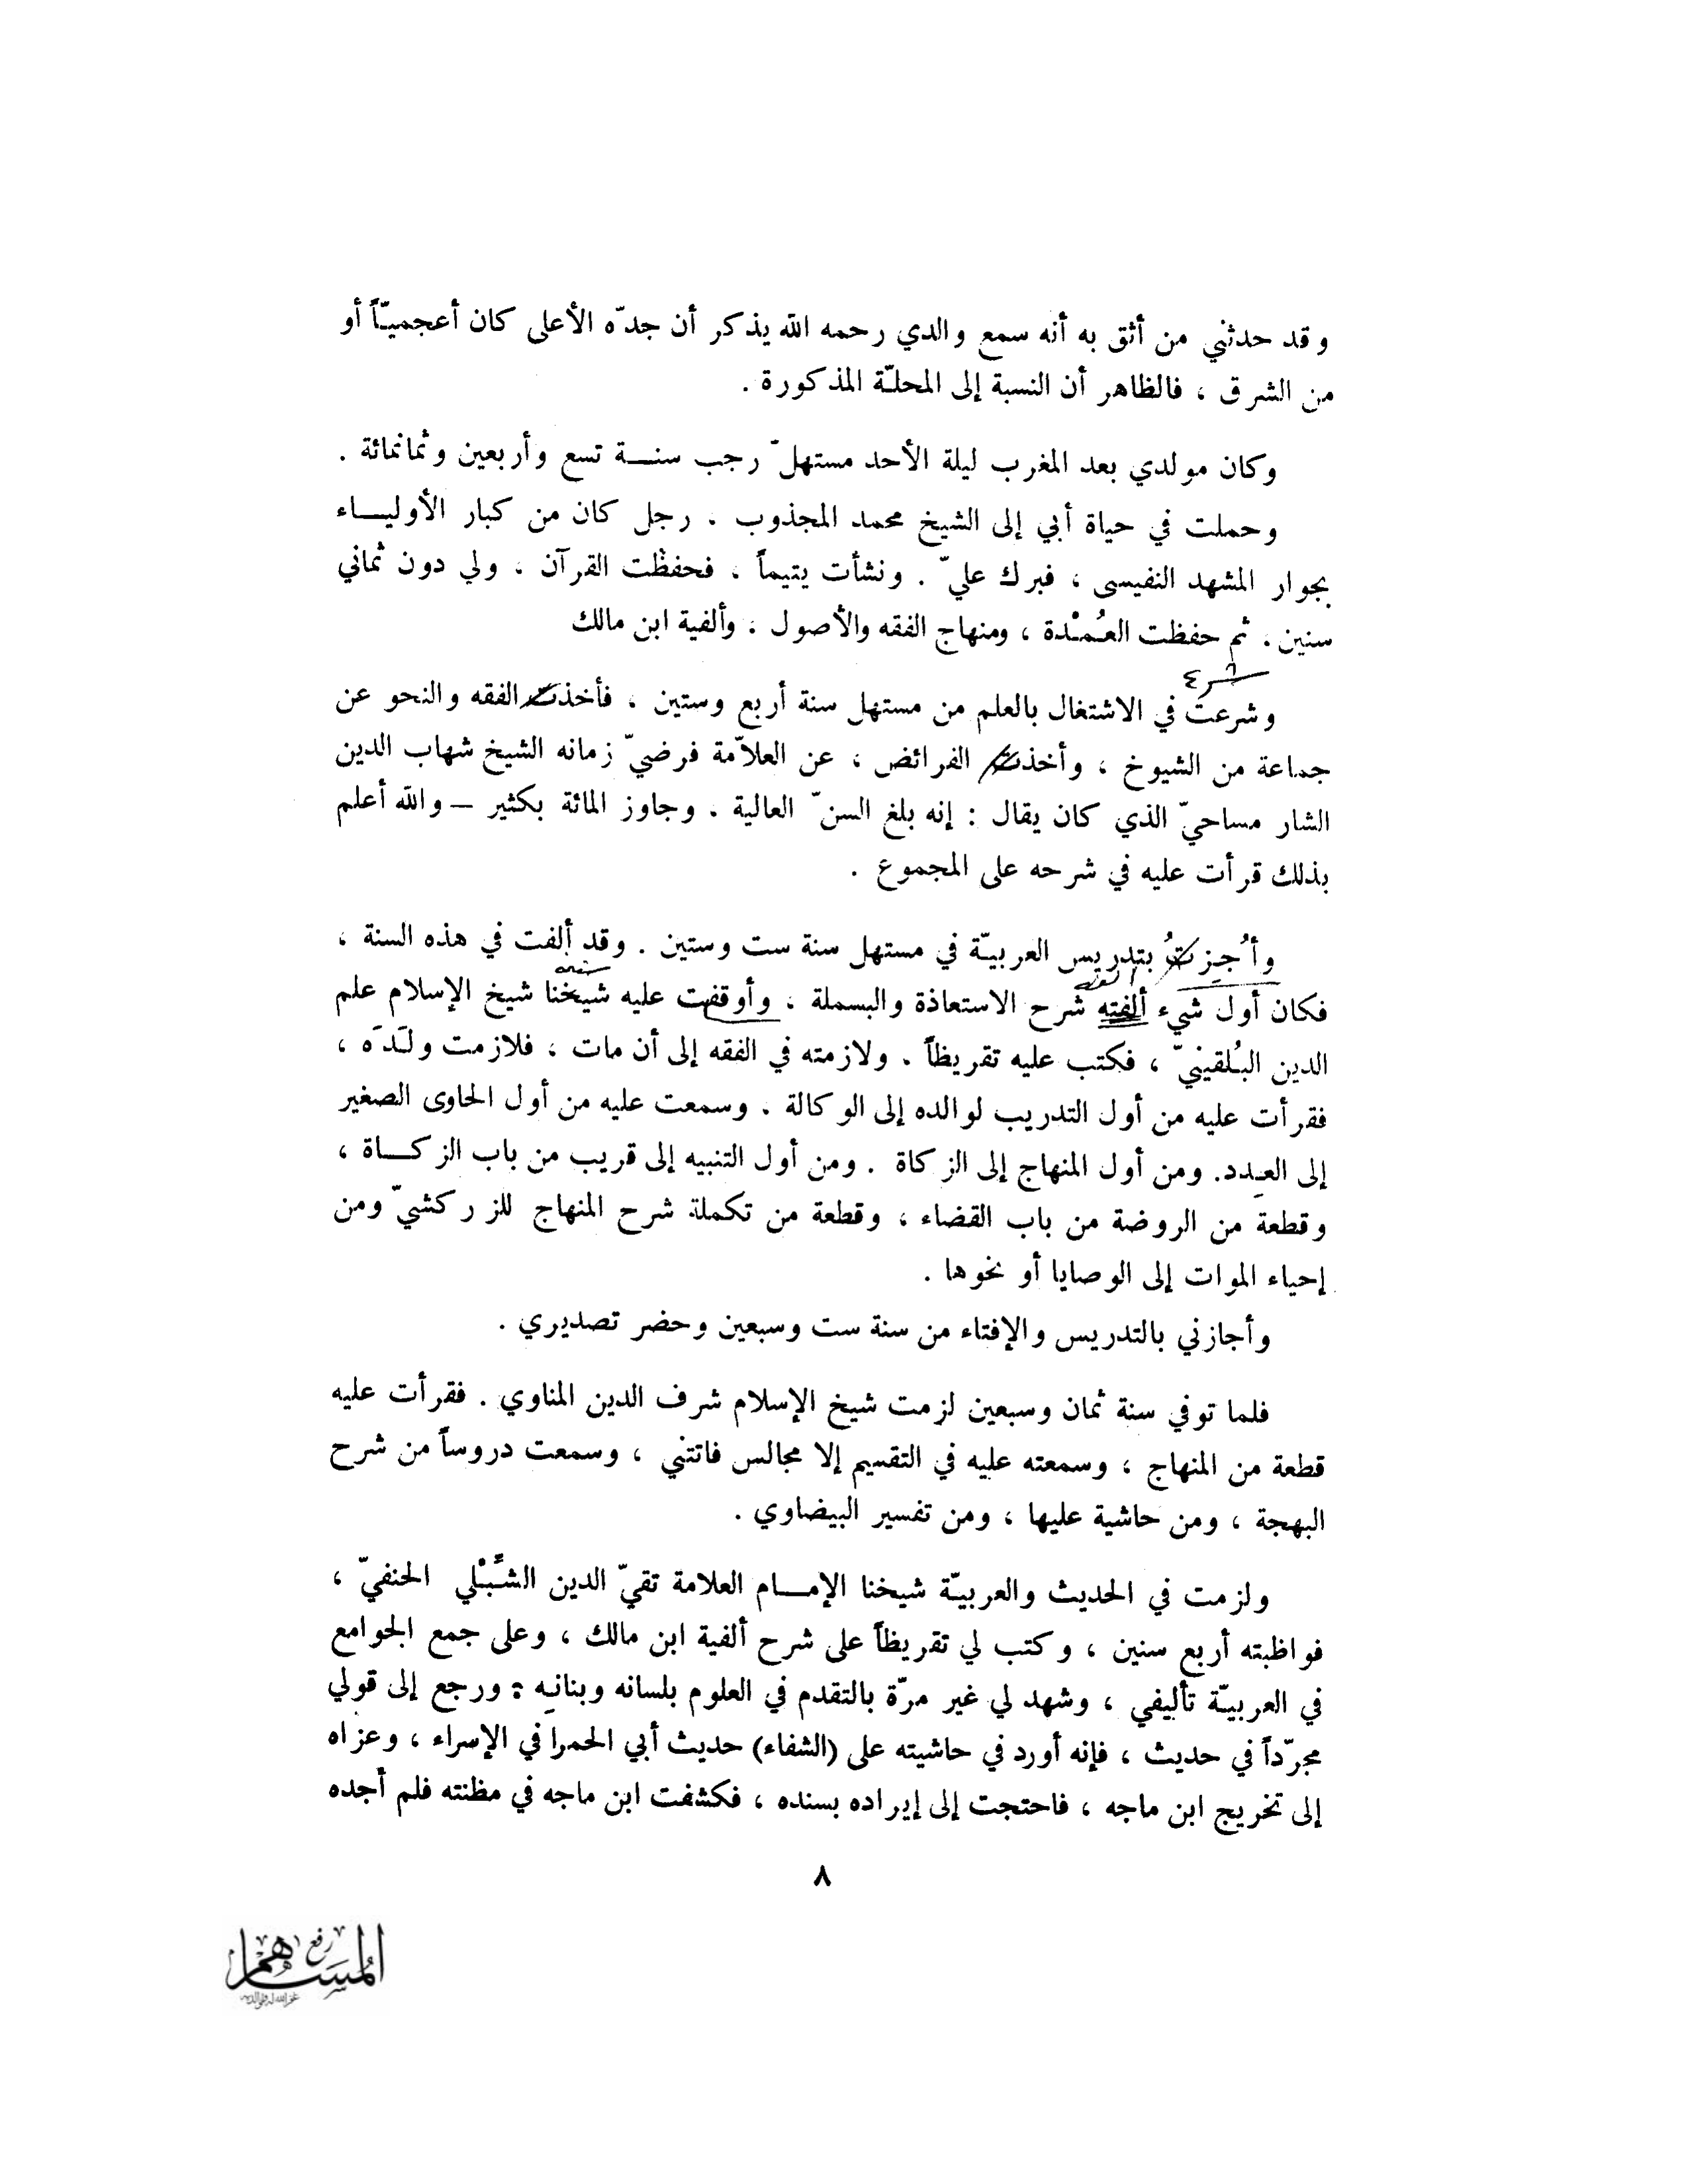 وقد حدثني من أثق به أنه سمع والدي رحمه الله يذكر أن جدّه الأعلى كان أعجميّاً أو
من الشرق ، فالظاهر أن النسبة إلى المحلّة المذكورة .
وكان مولدي بعد المغرب ليلة الأحد مستهلّ رجب سنة تسع وأربعين وثمانمائة .
وحملت في حياة أبي إلى الشيخ محمد المجذوب . رجل كان من كبار الأولياء
بجوار المشهد النفيسى ، فبرك عليّ . ونشأت يتيماً ، فحفظت القرآن ، ولي دون ثماني
سنين . ثم حفظت العُمْدة ، ومنهاج الفقه والأصول . وألفية ابن مالك
وشرعت في الاشتغال بالعلم من مستهل سنة أربع وستين ، فأخذت الفقه والنحو عن
جماعة من الشيوخ ، وأخذت الفرائض ، عن العلاّمة فرضيّ زمانه الشيخ شهاب الدين
الشار مساحيّ الذي كان يقال : إنه بلغ السنّ العالية . وجاوز المائة بكثير – والله أعلم
بذلك قرأت عليه في شرحه على المجموع .
وأُجِزتُ بتدريس العربيّة في مستهل سنة ست وستين . وقد ألفت في هذه السنة ،
فكان أول شيء ألفته شرح الاستعاذة والبسملة ، وأوقفت عليه شيخنا شيخ الإسلام علم
الدين البُلقينيّ ، فكتب عليه تقريظاً . ولازمته في الفقه إلى أن مات ، فلازمت ولَدَه ،
فقرأت عليه من أول التدريب لوالده إلى الوكالة . وسمعت عليه من أول الحاوى الصغير
إلى العِدد. ومن أول المنهاج إلى الزكاة . ومن أول التنبيه إلى قريب من باب الزكاة ،
وقطعة من الروضة من باب القضاء ، وقطعة من تكملة شرح المنهاج للزركشيّ ومن
إحياء الموات إلى الوصايا أو نحوها .
وأجازني بالتدريس والإفتاء من سنة ست وسبعين وحضر تصديري .
فلما توفي سنة ثمان وسبعين لزمت شيخ الإسلام شرف الدين المناوي . فقرأت عليه
قطعة من المنهاج ، وسمعته عليه في التقسيم إلا مجالس فاتتني ، وسمعت دروساً من شرح
البهجة ، ومن حاشية عليها ، ومن تفسير البيضاوي .
ولزمت في الحديث والعربيّة شيخنا الإمام العلامة تقيّ الدين الشبْلي الحنفيّ ،
فواظبته أربع سنين ، وكتب لي تقريظاً على شرح ألفية ابن مالك ، وعلى جمع الجوامع
في العربيّة تأليفي ، وشهد لي غير مرّة بالتقدم في العلوم بلسانه وبنانِه : ورجع إلى قولي
مجرّداً في حديث ، فإنه أورد في حاشيته على (الشفاء) حديث أبي الحمرا في الإسراء ، وعزاه
إلى تخريج ابن ماجه ، فاحتجت إلى إيراده بسنده ، فكشفت ابن ماجه في مظنته فلم أجده
٨
رفع المساهم